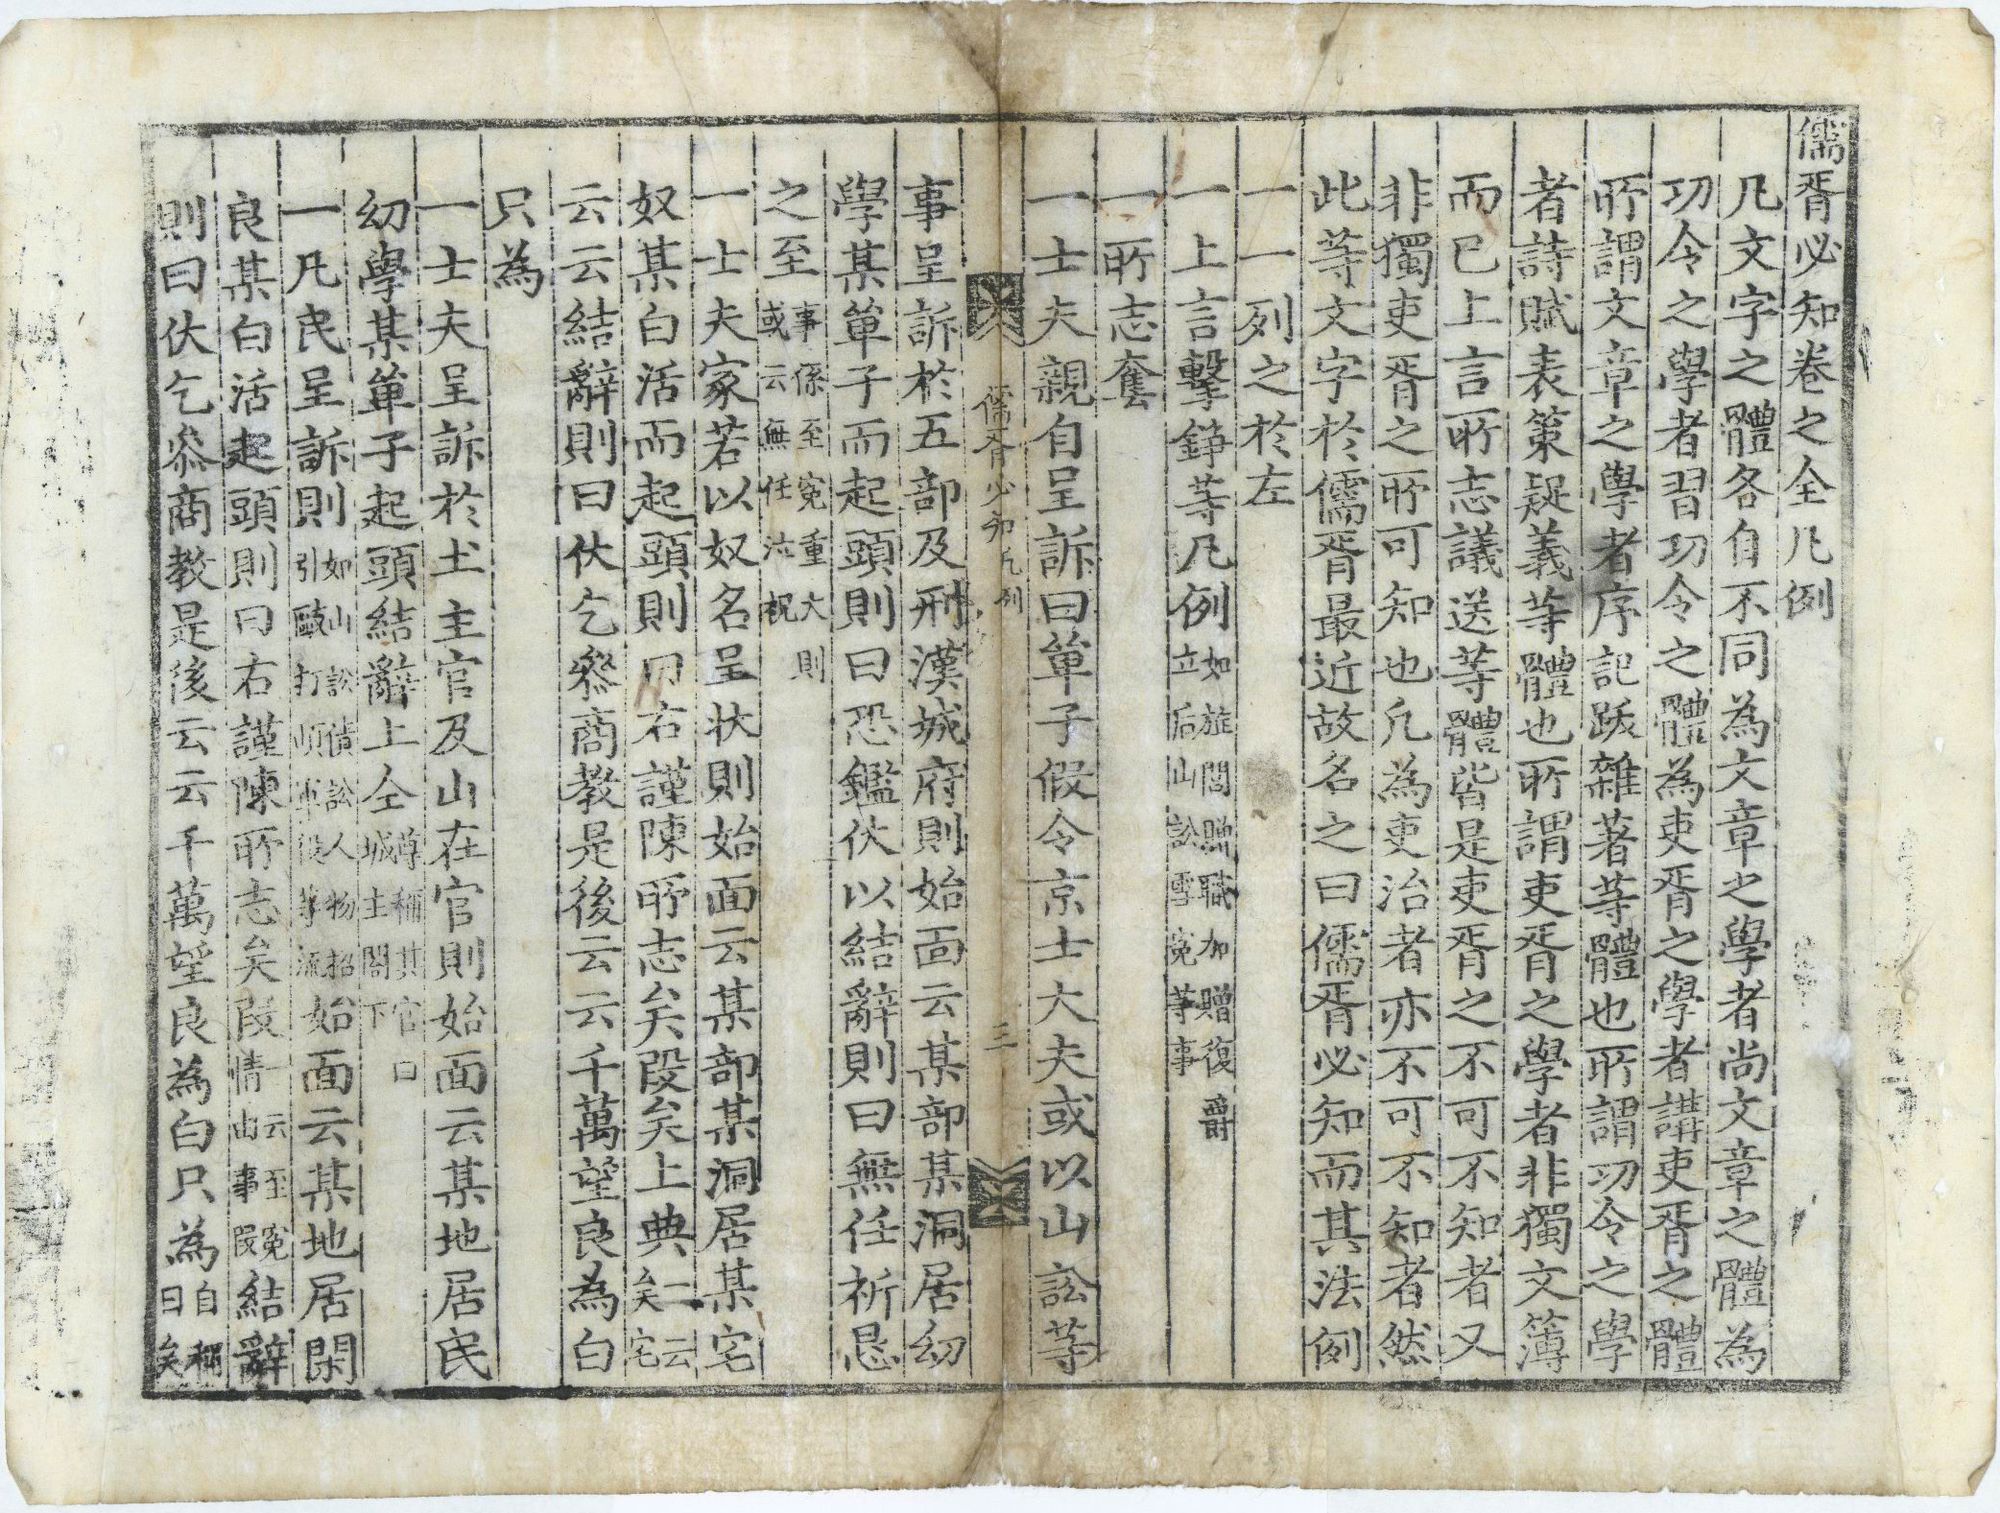 儒胥必知卷之全凡例
凡文字之體各自不同為文章之學者尚文章之體為
功令之學者習功令之體為吏胥之學者講吏胥之體
所謂文章之學者序記跋雜著等體也所謂功令之學
者詩賦表策疑義等體也所謂吏胥之學者非獨文簿
而已上言所志議送等體皆是吏胥之不可不知者又
非獨吏胥之所可知也凡為吏治者亦不可不知者然
此等文字於儒胥最近故名之曰儒胥必知而其法例
一一列之於左
一上言擊錚等凡例如旌閭贈職加贈復爵
立后山訟雪冤等事
一所志套
一士夫親自呈訴曰單子假令京士大夫或以山訟等
儒胥必知凡例 三
事呈訴於五部及刑漢城府則始面云某部某洞居幼
學某單子而起頭則曰恐鑑伏以結辭則曰無任祈恳
之至事係至冤重大則
或云無任泣祝
一士夫家若以奴名呈狀則始面云某部某洞居某宅
奴某白活而起頭則曰右謹陳所志矣段矣上典一云
矣宅
云云結辭則曰伏乞叅商教是後云云千萬望良為白
只為
一士夫呈訴於土主官及山在官則始面云某地居民
幼學某單子起頭結辭上仝尊稱其官曰
城主閤下
一凡民呈訴則如山訟債訟人物招
引毆打頉軍役等流始面云某地居閑
良某白活起頭則曰右謹陳所志矣段一云至冤
情由事段結辭
則曰伏乞叅商教是後云云千萬望良為白只為自稱
曰矣